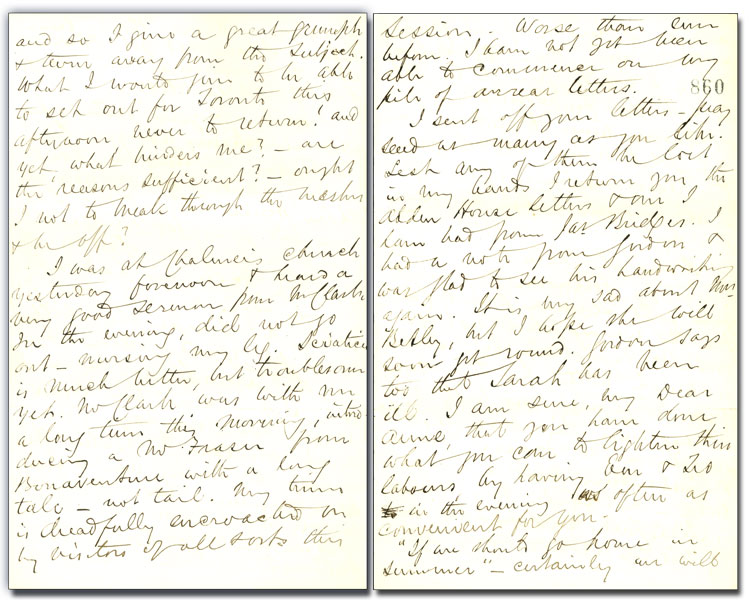 and so I give a great grumph
& turn away from the subject.
What I would give to be able
to set out for Toronto this
afternoon never to return! and
yet what hinders me? – are
the reasons sufficient? – ought
I not to break through the meshes
& be off?
I was at Chalmers church
yesterday forenoon & heard a
very good sermon from Mr Clark.
In the evening, did not go
out – nursing my leg. Sciatica
is much better, but troublesome
yet. Mr Clark was with me
a long time this morning, intro-
ducing a Mr Fraser from
Bonaventure with a long
tale – not tail. My time
is dreadfully encroached on
by visitors of all sorts this
session. Worse than ever
before. I have not yet been
able to commence on my
pile of arrear letters.
860
I sent off your letters – pray
send as many as you like.
Lest any of them be lost
in my hands I return you the
Alden House letters & one I
have had from Jas Bridges. I
had a note from Gordon &
was glad to see his handwriting
again. It is very sad about Mrs
Kelly, but I hope she will
soon get round. Gordon says
too that Sarah has been
ill. I am sure, my dear
Annie, that you have done
what you can to lighten their
labours by having &
in the evening as often as
convenient for you.
"If we should go home in
summer" – certainly we will